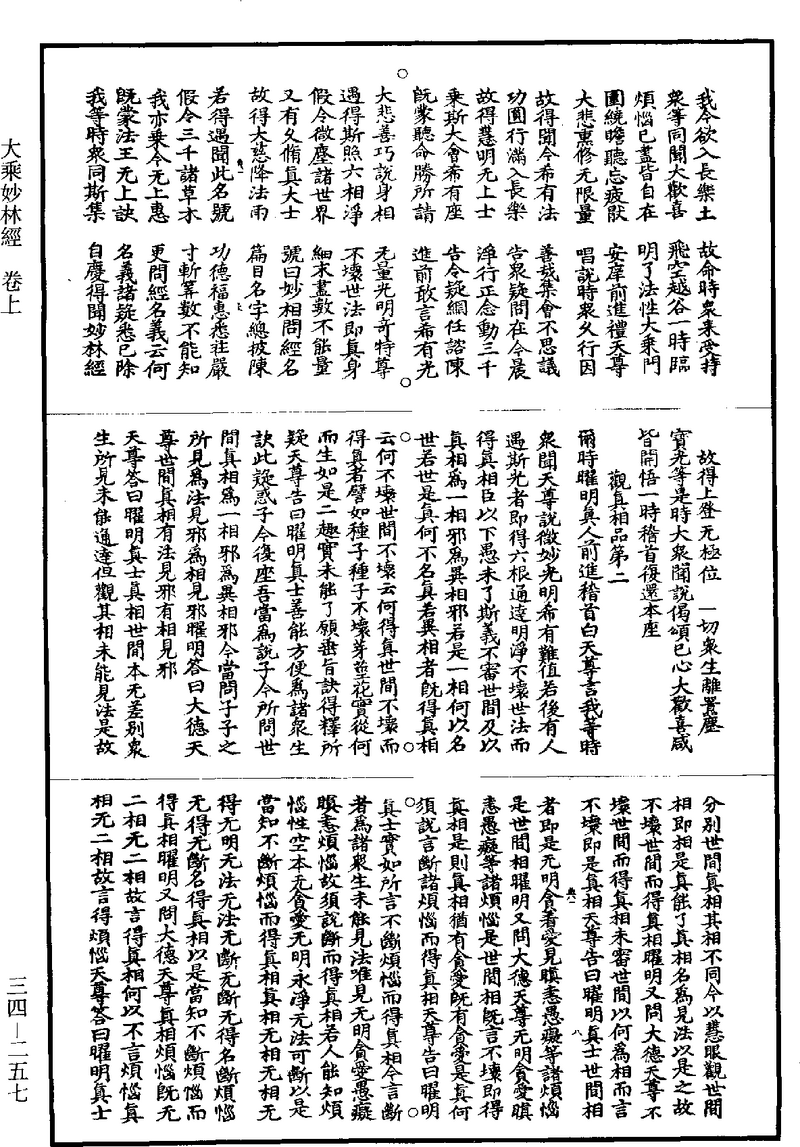 我今欲入長樂土　故命時衆来受持
衆等同聞大歡喜　飛空越谷一時臨
煩惱已盡皆自在　明了法性大乘門
圍繞瞻聽忘疲猒　安庠前進禮天尊
大悲熏修无限量　唱說時衆久行因
故得聞今希有法　善哉集會不思議
功圓行滿入長樂　告衆疑問在今晨
故得慧明无上士　淨行正念動三千
乘斯大會希有座　告令疑網任諮陳
既蒙聽命勝所請　進前敢言希有光
大悲善巧說身相　无量光明奇特尊
遇得斯照六相淨　不壞世法即真身
假令微塵諸世界　細末盡數不能量
又有久脩真大士　號曰妙相問經名
故得大慈降法雨　篇目名字總披陳
若得遇聞此名號　功德福惠悉莊嚴
假令三千諸草木　寸斬筭數不能知
我亦乘今无上惠　更問經名義云何
既蒙法王无上訣　名義諸疑悉已除
我等時衆同斯集　自慶得聞妙林經
故得上登无極位　一切衆生離罣塵
寶光等是時大衆聞說偈頌已心大歡喜咸
皆開悟一時稽首復還本座
觀真相品第二
爾時曜明真人前進稽首白天尊言我等時
衆聞天尊說微妙光明希有難值若後有人
遇斯光者即得六根通達明淨不壞世法而
得真相臣以下愚未了斯義不審世間及以
真相爲一相邪爲異相邪若是一相何以名
世若世是真何不名真若異相者既得真相
云何不壞世間不壞云何得真世間不壞而
得真者譬如種子種子不壞芽莖花實從何
而生如是二趣實未能了願垂旨訣得釋所
疑天尊告曰曜明真士善能方便爲諸衆生
訣此疑惑子今復座吾當爲說子今所問世
間真相爲一相邪爲異相邪今當問子子之
所見爲法見邪爲相見邪曜明答曰大德天
尊世間真相有法見邪有相見邪
天尊答曰曜明真士真相世間本无差別衆
生所見未能通達但觀其相未能見法是故
分別世間真相其相不同今以慧眼觀世間
相即相是真能了真相名爲見法以是之故
不壞世間而得真相曜明又問大德天尊不
壞世間而得真相未審世間以何爲相而言
不壞即是真相天尊告曰曜明真士世間相
者即是无明貪着愛見瞋恚愚癡等諸煩惱
是世間相曜明又問大德天尊无明貪愛瞋
恚愚癡等諸煩惱是世間相既言不壞即得
真相是則真相猶有貪愛既有貪愛是真何
須說言斷諸煩惱而得真相天尊告曰曜明
真士實如所言不斷煩惱而得真相今言斷
者爲諸衆生未能見法唯見无明貪愛愚癡
瞋恚煩惱故須說斷而得真相若人能知煩
惱性空本无貪愛无明永淨无法可斷以是
當知不斷煩惱而得真相真相无相无相无
得无明无法无法无斷无斷无得名斷煩惱
无得无斷名得真相以是當知不斷煩惱而
得真相曜明又問大德天尊真相煩惱既无
二相无二相故言得真相何以不言煩惱真
相无二相故言得煩惱天尊答曰曜明真士
大乘妙林經　卷上
三四—二五七